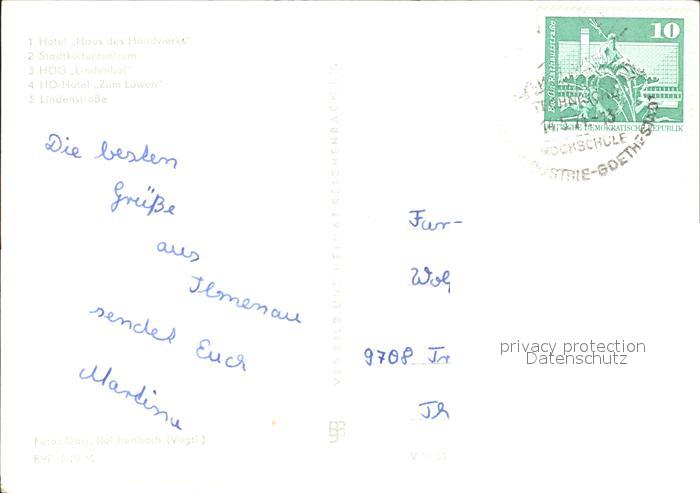 1 Hotel „Haus des Handwerks"
2 Stadtkulturzentrum
3 HOG „Lindenhof"
4 HO-Hotel „Zum Löwen"
5 Lindenstraße
Die besten
Grüße
aus
Ilmenau
sendet Euch
Martina
Foto: Darr, Reichenbach (Vogtl.)
VEB BILD UND HEIMAT REICHENBACH
Berlin, Rathausstraße
10
DEUTSCHE DEMOKRATISCHE REPUBLIK
TECHNISCHE
HOCHSCHULE
INDUSTRIE-GOETHESTADT
Fam-
Wol
9708 Tr
Th
privacy protection
Datenschutz